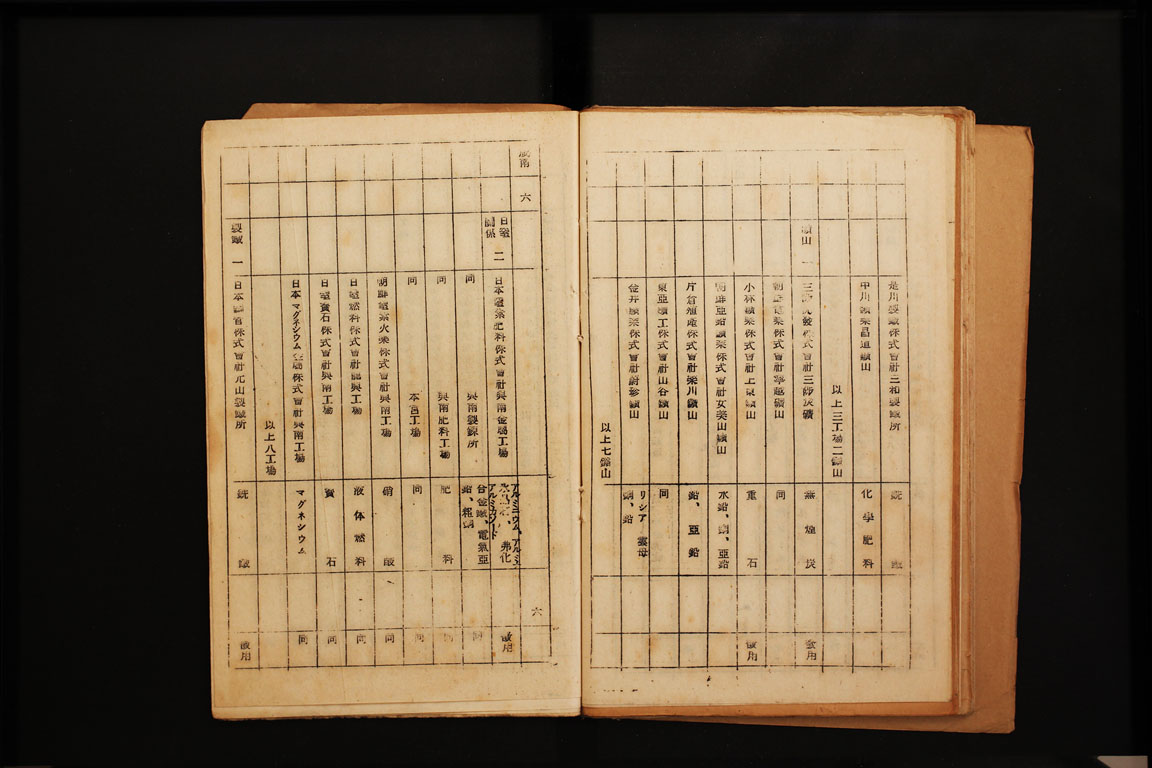 是川製鐵株式會社三和製鐵所
銑
鐵
中川鑛業昌道鑛山
化學肥料
以上三工場二鑛山
鑛山 一
三
株式會社三
炭鑛
無煙炭
徴用
朝鮮
株式會社
鑛山
同
小林鑛業株式會社上東鑛山
重石
徴用
朝鮮亞鉛鑛業株式會社女美山鑛山
水鉛、銅、亞鉛
片倉殖産株式會社樂川鑛山
鉛、亞鉛
東亞鑛工株式會社山谷鑛山
同
金井鑛業株式會社蔚珍鑛山
リシア雲母
銅、鉛
以上七鑛山
咸南
六
六
日窒關係 二
日本窒素肥料株式會社興南金屬工場
アルミニウム、アルミ
弗化
アルミカンシード
徴用
同 興南製錬所
合金鐵、電氣亞鉛、粗銅
同
同 興南肥料工場
肥料
同
同 本宮工場
同
同
朝鮮窒素火薬株式會社興南工場
硝酸
同
日窒燃料株式會社龍興工場
液体燃料
同
日窒寶石株式會社興南工場
寶石
同
日本マグネシウム金屬株式會社興南工場
マグネシウム
同
以上八工場
製鐵 一
日本鋼管株式會社元山製鐵所
銑鐵
徴用